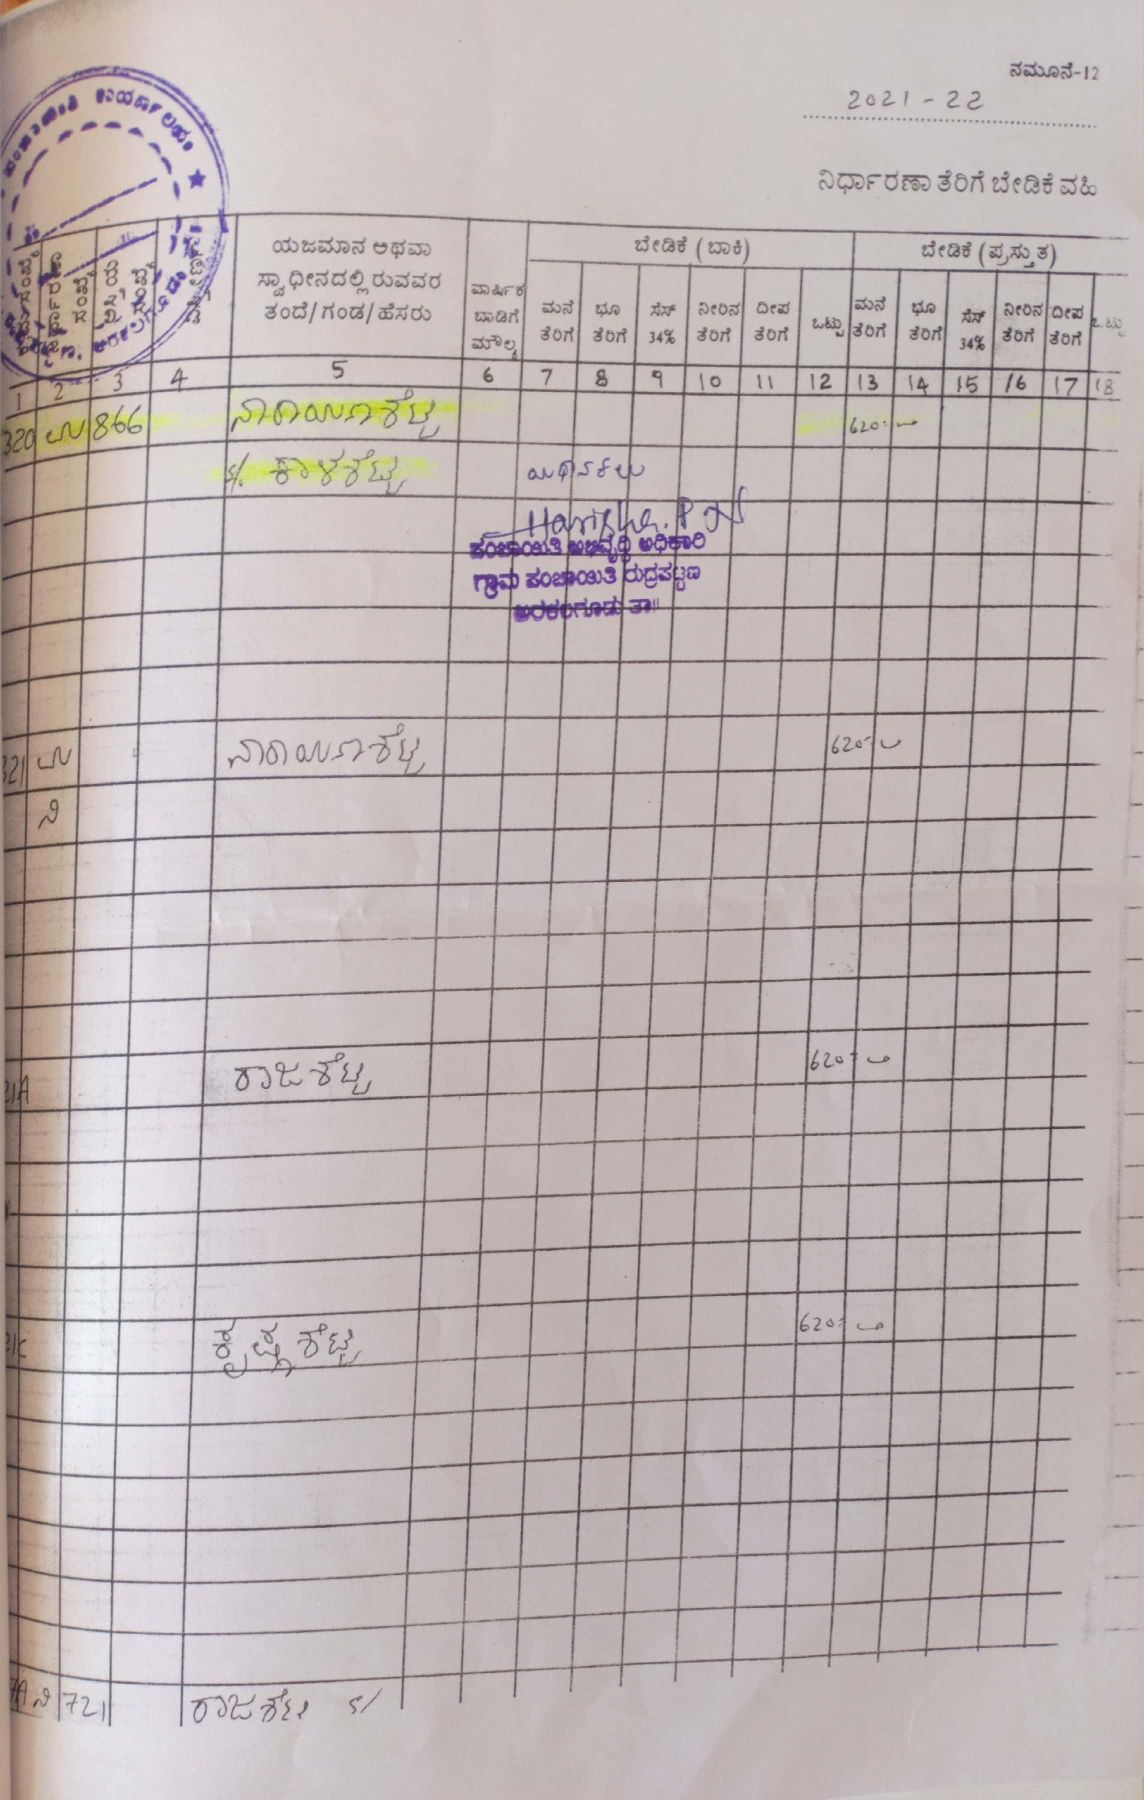 ನಮೂನೆ-12
2021-22
ನಿರ್ಧಾರಣಾ ತೆರಿಗೆ ಬೇಡಿಕೆ ವಹಿ
ಯಜಮಾನ ಅಥವಾ
ಸ್ವಾಧೀನದಲ್ಲಿರುವವರ
ತಂದೆ/ಗಂಡ/ಹೆಸರು
ವಾರ್ಷಿಕ
ಬಾಡಿಗೆ
ಮೌಲ್ಯ
ಬೇಡಿಕೆ (ಬಾಕಿ) ಬೇಡಿಕೆ (ಪ್ರಸ್ತುತ)
ಮನೆ ಭೂ ಸೆಸ್ ನೀರಿನ ದೀಪ ಒಟ್ಟು ಮನೆ ಭೂ ಸೆಸ್ ನೀರಿನ ದೀಪ ಒಟ್ಟು
ತೆರಿಗೆ ತೆರಿಗೆ 34% ತೆರಿಗೆ ತೆರಿಗೆ ತೆರಿಗೆ ತೆರಿಗೆ 34% ತೆರಿಗೆ ತೆರಿಗೆ
1 2 3 4 5 6 7 8 9 10 11 12 13 14 15 16 17 18
320 866 ನಾರಾಯಣಶೆಟ್ಟಿ 620
ಕಾಳಶೆಟ್ಟಿ
ಪಂಚಾಯಿತಿ ಅಭಿವೃದ್ಧಿ ಅಧಿಕಾರಿ
ಗ್ರಾಮ ಪಂಚಾಯಿತಿ ರುದ್ರಪಟ್ಟಣ
ಅರಕಲಗೂಡು ತಾ॥
321 ನಾರಾಯಣಶೆಟ್ಟಿ 620
ನಿ
21A ರಾಜಶೆಟ್ಟಿ 620
ಕೃಷ್ಣಶೆಟ್ಟಿ 620
ನಿ 721 ರಾಜಶೆಟ್ಟಿ